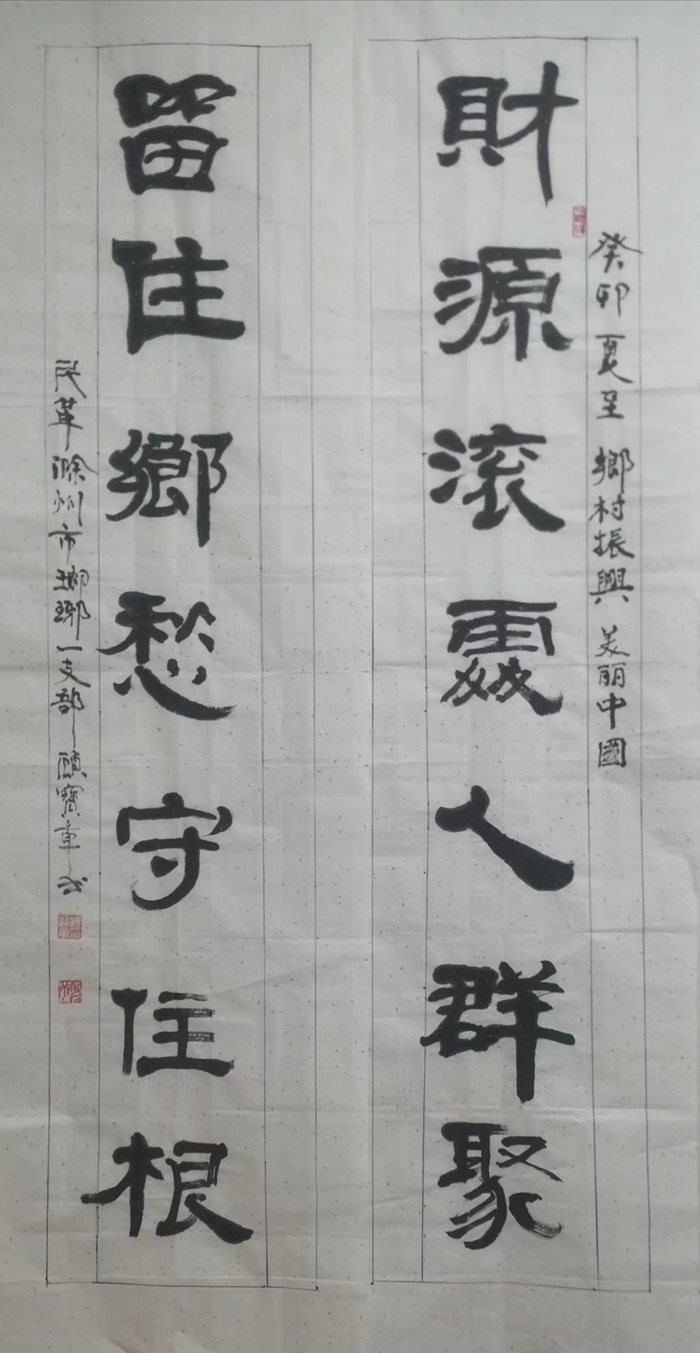 癸卯夏至 鄉村振興 美丽中國
財源滚人群聚
留住鄉愁守住根
民革滁州市瑯琊一支部 寶章书